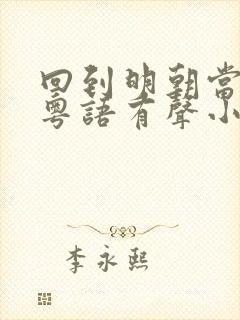 回到明朝當
粵語有聲小
李永熙